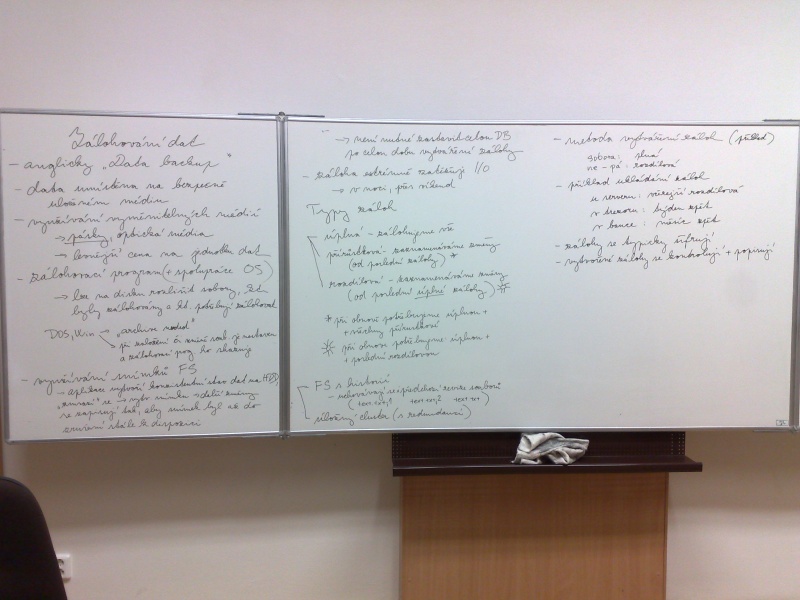 Zálohování dat
- anglicky "Data backup"
- data umístěna na bezpečně
uloženém médiu
- využívání vyměnitelných médií
→ pásky, optická média
→ levnější cena na jednotku dat
- zálohovací program (+ spolupráce OS)
→ lze na disku rozlišit soubory, kt.
byly zálohovány a kt. potřebují zálohovat
DOS, Win → "archive
→ při založení či změně soub. je nastaven
a zálohovací prog. ho shazuje
- využívání snímků FS
→ aplikace vytvoří konzistentní stav dat na HDD,
"zmrazí" se → vytv. snímku + další změny
se zapisují tak, aby snímek byl až do
zrušení stále k dispozici
→ není nutné zastavit celou DB
po celou dobu vytváření zálohy
- záloha extrémně zatěžuje I/O
→ v noci, přes víkend
Typy záloh
úplná - zálohujeme vše
přírůstková - zaznamenáváme změny
(od poslední zálohy) *
rozdílová - zaznamenáváme změny
(od poslední úplné zálohy)
* při obnově potřebujeme úplnou +
+ všechny přírůstkové
při obnově potřebujeme úplnou +
+ poslední rozdílovou
FS s historií
- uchovávají se i předchozí verze souborů
úložný cluster (s redundancí)
- metoda vytváření záloh (příklad)
sobota: plná
ne - pá: rozdílová
- příklad ukládání záloh
u serveru: včerejší rozdílová
v trezoru: týden zpět
v bance: měsíc zpět
- zálohy se typicky šifrují
- vytvořené zálohy se kontrolují + popisují